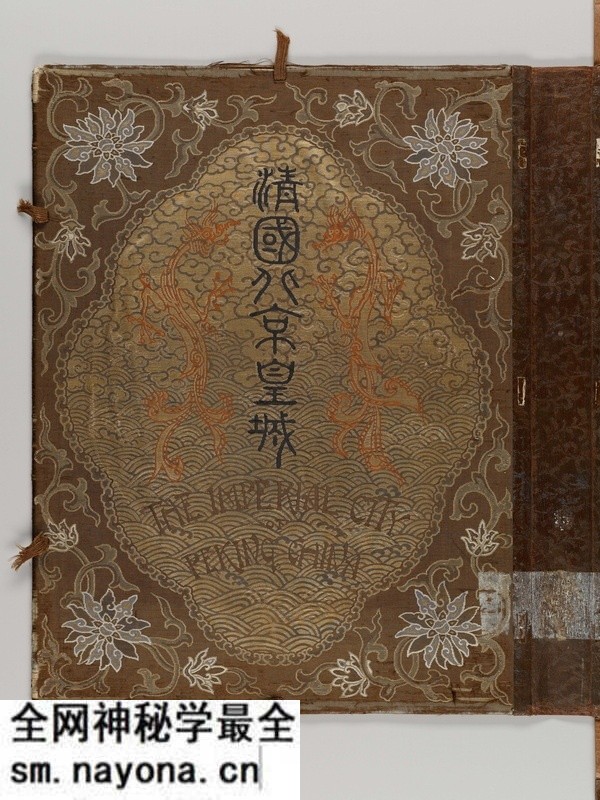 清國北京皇城
THE IMPERIAL CITY
OF
PEKING CHINA
全网神秘学最全
sm.nayona.cn